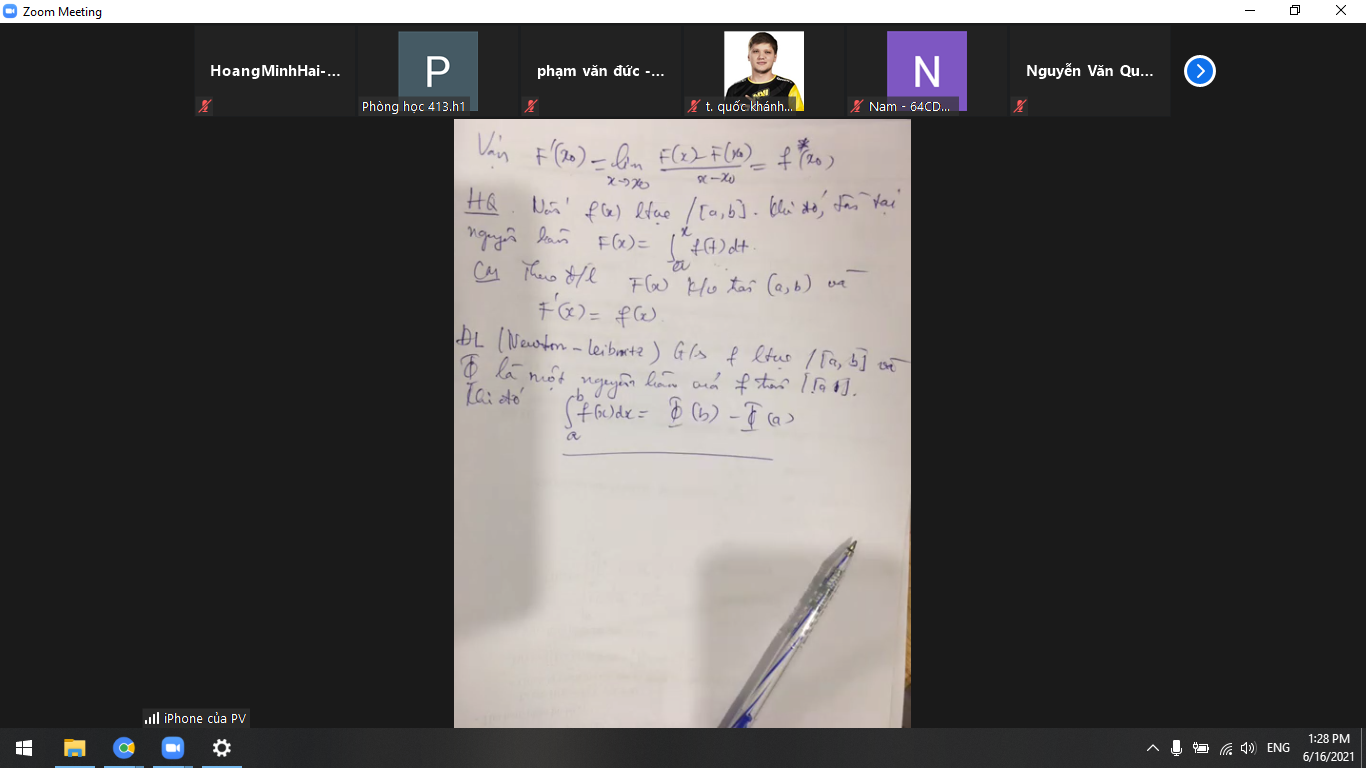 Zoom Meeting
HoangMinhHai-...
P
Phòng học 413.h1
phạm văn đức -...
t. quốc khánh...
N
Nam - 64CD...
Nguyễn Văn Qu...
Vậy F'(x₀) = lim x→x₀ F(x) - F(x₀) / x - x₀ = f(x₀)
HQ. Nếu f(x) ltục /[a,b]. Khi đó, tồn tại
nguyên hàm F(x) = ∫ₐˣ f(t)dt.
CM Theo đ/l F(x) k/v trên (a,b) và
F'(x) = f(x)
ĐL (Newton - Leibnitz) G/s f ltục /[a,b] và
Φ là một nguyên hàm của f trên [a b].
Khi đó
∫ₐᵇ f(x)dx = Φ(b) - Φ(a)
iPhone của PV
ENG
1:28 PM
6/16/2021